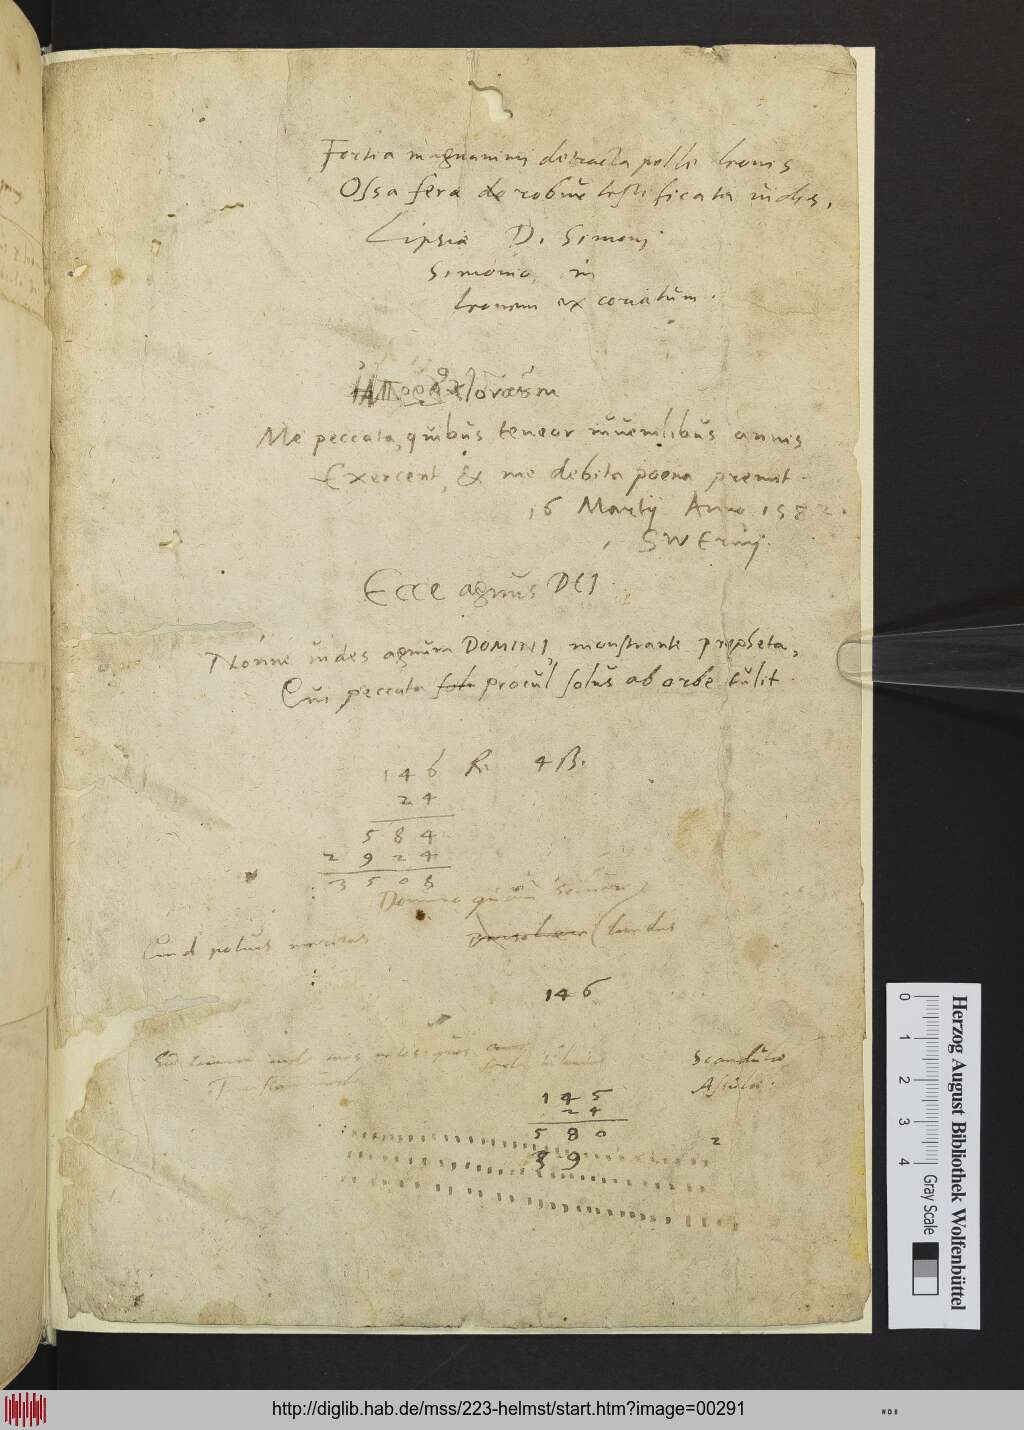 Fortia magnanimi detracta pelle leonis
Ossa fera de robure testificata vides.
Lipsiæ D. Simonj
Simonio in
leonem excoriatum.
Me peccata, quibus teneor iuvenilibus annis
Exercent, & me debita poena premit.
16 Martij Anno 1582.
SWErinj.
Ecce agnus DEI
Nonne vides agnum DOMINI, monstrante propheta,
Qui peccata procul solus ab orbe tulit.
146 R. 4 ß.
24
584
2924
3508
Domine
laudes
146
Scandula
Assula.
145
24
580
2
39
0 1 2 3 4
Gray Scale
Herzog August Bibliothek Wolfenbüttel
http://diglib.hab.de/mss/223-helmst/start.htm?image=00291